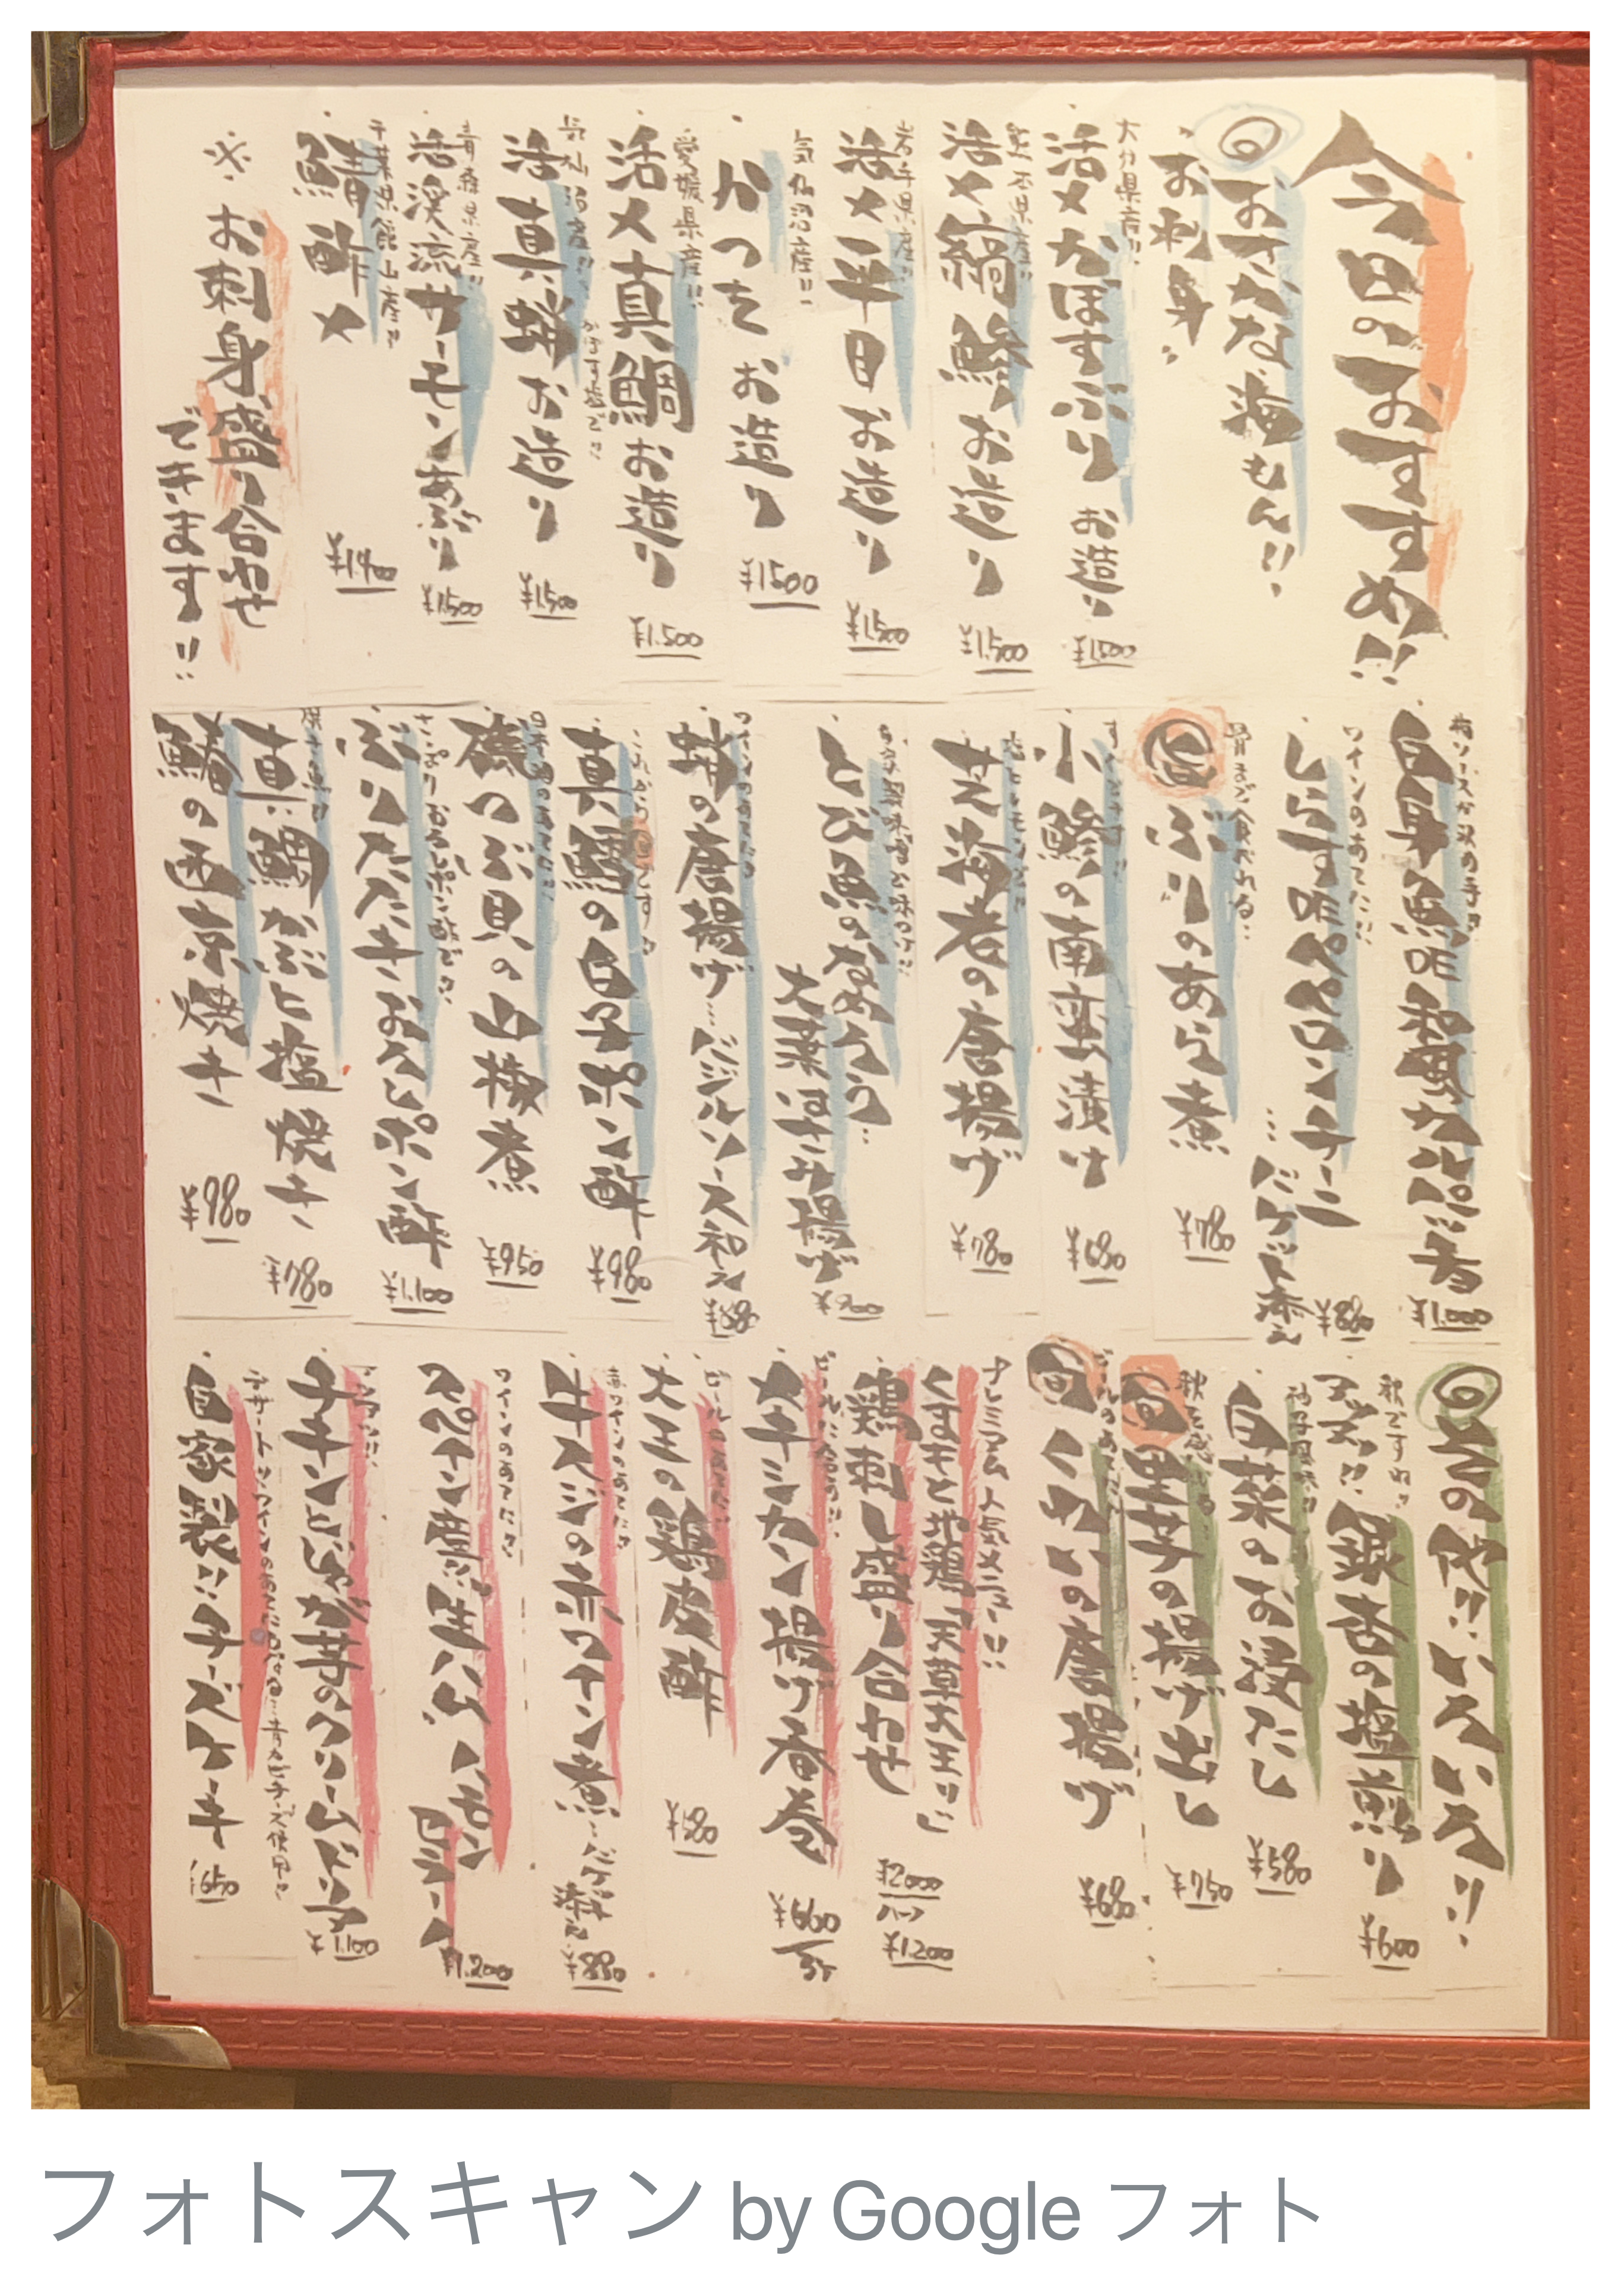 今日のおすすめ!!
おさかな 海もん!!
お刺身
大分県産!!
活〆かぼすぶり お造り
¥1,500
活〆縞鯵 お造り
¥1,500
岩手県産!!
活〆平目 お造り
¥1,500
気仙沼産!!
かつを お造り
¥1500
愛媛県産!!
活〆真鯛 お造り
¥1.500
気仙沼産!!
かぼす塩で!!
活真蛸 お造り
¥1,500
青森県産!!
活渓流サーモンあぶり
¥1,500
千葉県館山産!!
鯖酢〆
※お刺身盛り合わせ
できます!!
白身魚 和風カルパッチョ
¥1.000
ワインのあてに!!
しらす ペペロンチーニ
…バケット添え
¥880
骨まで食べれる…
旬 ぶりのあら煮
¥780
すぐでます!!
小鯵の南蛮漬け
¥680
塩とレモンで!!
芝海老の唐揚げ
¥780
とび魚のなめろう…
大葉はさみ揚げ
ワインのあてにも
蛸の唐揚げ…バジルソース和え
これから旬です!!
真鱈の白子ポン酢
¥980
日本酒のあてに!!
磯つぶ貝の山椒煮
¥950
さっぱりおろしポン酢で!!
ぶりたたき おろしポン酢
¥1.100
真鯛かぶと塩焼き
¥780
鰆の西京焼き
¥980
その他!! いろいろ!!
秋ですね!!
銀杏の塩煎り
¥600
柚子風味!!
白菜のお浸たし
¥580
秋を感じる
旬 里芋の揚げ出し
¥750
ビールのあてに
旬 くわいの唐揚げ
¥680
プレミアム人気メニュー!!
くまもと地鶏「天草大王」に
鶏刺し盛り合わせ
¥2000
ハーフ
¥1200
ビールに合う!!
大チョカン揚げ春巻
¥660
ビールのあてに!!
大王の鶏皮酢
¥580
赤ワインのあてに!!
牛スジの赤ワイン煮…バケット添え
¥880
ワインのあてに!!
スペイン産!! 生ハム ハモンセラーノ
¥1.200
チキンとじゃが芋のクリームドリア
¥1.100
自家製!! チーズケーキ
¥650
フォトスキャン by Google フォト